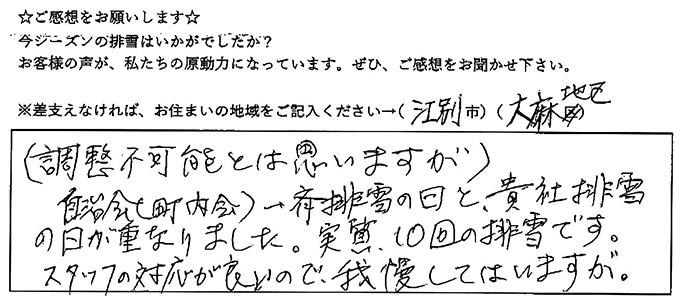 ☆ご感想をお願いします☆
今シーズンの排雪はいかがでしたか？
お客様の声が、私たちの原動力になっています。ぜひ、ご感想をお聞かせ下さい。
※差支えなければ、お住まいの地域をご記入ください→（江別市）（大麻地区）
（調整不可能とは思いますが）
自治会（町内会）→ 排雪の日と、貴社排雪
の日が重なりました。実質、10回の排雪です。
スタッフの対応が良いので、我慢してはいますが。